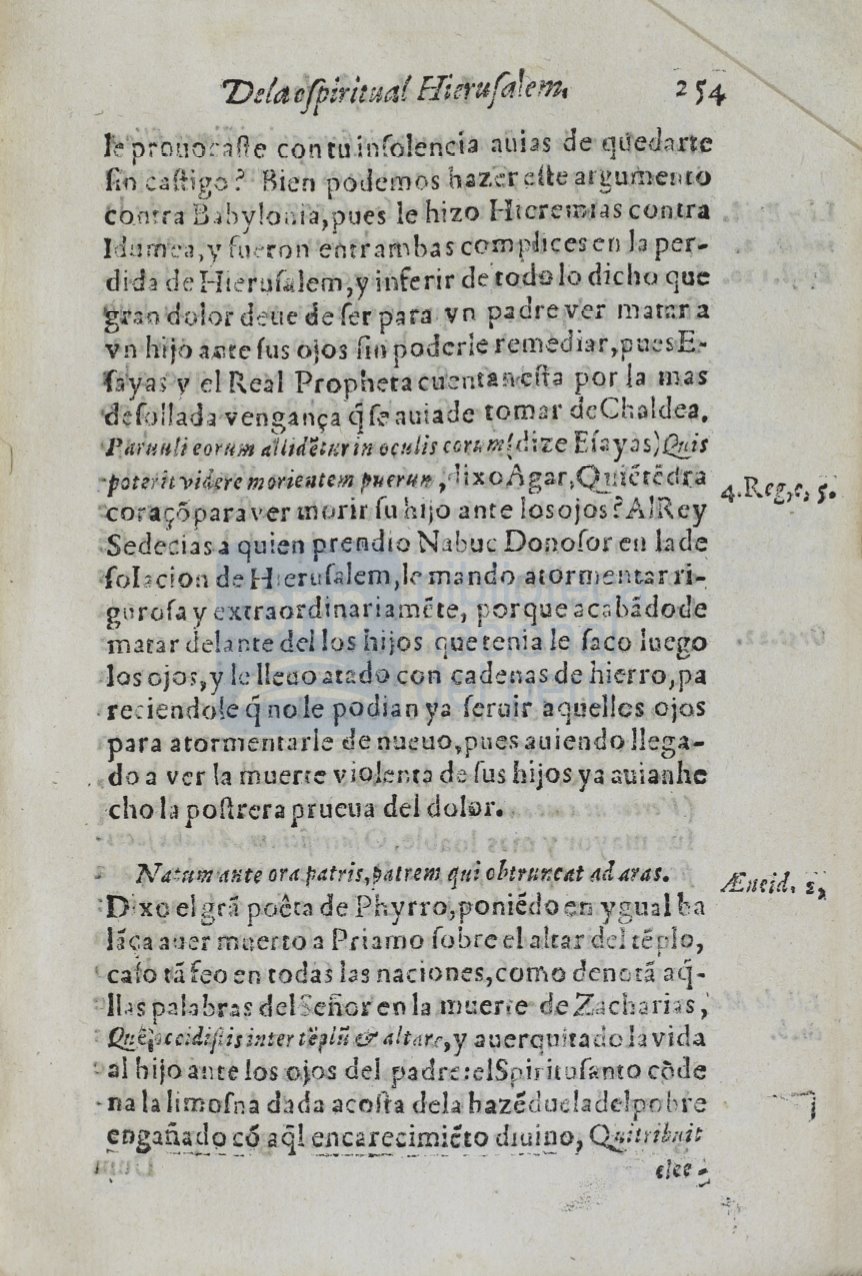 De la espiritual Hierusalem. 254
le prouocaste con tu insolencia auias de quedarte
sin castigo? Bien podemos hazer este argumento
contra Babylonia, pues le hizo Hieremias contra
Idumea, y fueron entrambas complices en la per-
dida de Hierusalem, y inferir de todo lo dicho que
gran dolor deue de ser para vn padre ver matar a
vn hijo ante sus ojos sin poderle remediar, pues E-
sayas y el Real Propheta cuentan esta por la mas
desollada vengança q̃ se auia de tomar de Chaldea.
Paruuli eorum allidẽtur in oculis eorum (dize Esayas) Quis
poterit videre morientem puerum, dixo Agar, Quiẽ tẽdra
coraçõ para ver morir su hijo ante los ojos? Al Rey
4. Reg. c. 5.
Sedecias a quien prendio Nabuc Donosor en la de
solacion de Hierusalem, le mando atormentar ri-
gurosa y extraordinariamẽte, porque acabãdo de
matar delante del los hijos que tenia le saco luego
los ojos, y le lleuo atado con cadenas de hierro, pa
reciendole q̃ no le podian ya seruir aquellos ojos
para atormentarle de nueuo, pues auiendo llega-
do a ver la muerte violenta de sus hijos ya auian he
cho la postrera prueua del dolor.
Natum ante ora patris, patrem qui obtruncat ad aras.
Æneid. 2,
Dixo el grã poêta de Phyrro, poniẽdo en ygual ba
lãça auer muerto a Priamo sobre el altar del tẽplo,
caso tã feo en todas las naciones, como denotã aq̃-
llas palabras del Señor en la muerte de Zacharias,
Quẽ occidistis inter tẽplũ & altare, y auer quitado la vida
al hijo ante los ojos del padre: el Spiritu santo cõde
na la limosna dada a costa de la hazẽduela del pobre
engañado cõ aq̃l encarecimiẽto diuino, Qui tribuit
elee-